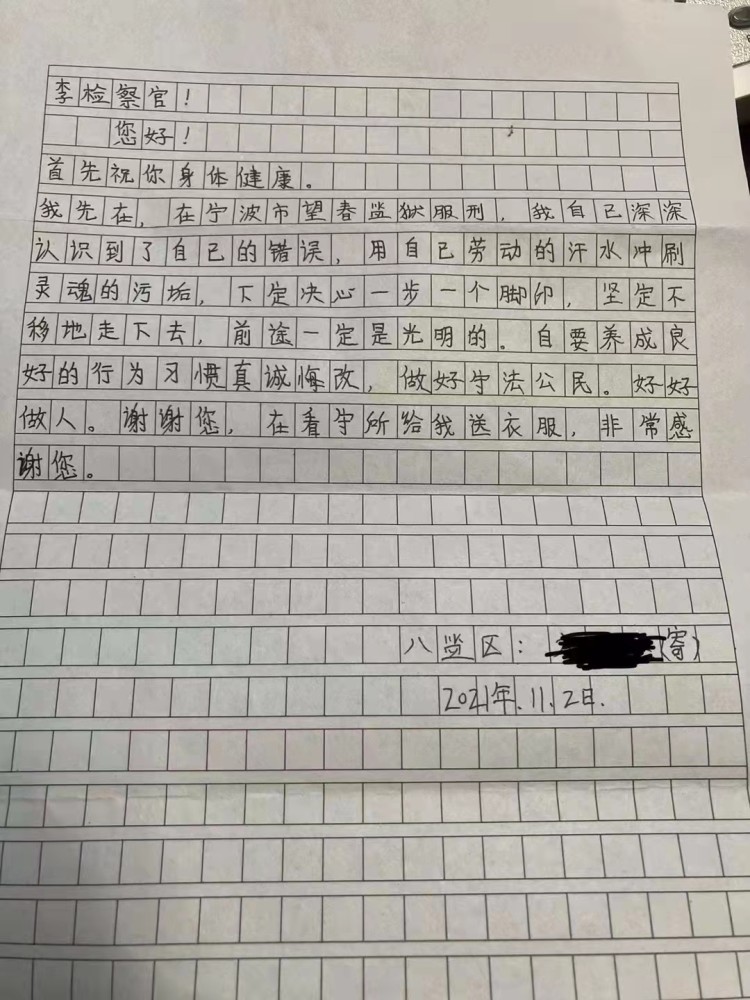 李检察官！
您好！
首先祝你身体健康。
我先在，在宁波市望春监狱服刑，我自己深深
认识到了自己的错误，用自己劳动的汗水冲刷
灵魂的污垢，下定决心一步一个脚印，坚定不
移地走下去，前途一定是光明的。自要养成良
好的行为习惯真诚悔改，做好守法公民。好好
做人。谢谢您，在看守所给我送衣服，非常感
谢您。
八监区：（寄）
2021年.11.2日.